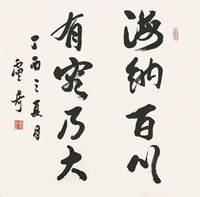 海納百川
有容乃大
丁酉之夏月